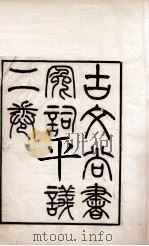 古文尚書
冤詞平議
二卷
mtoou.info